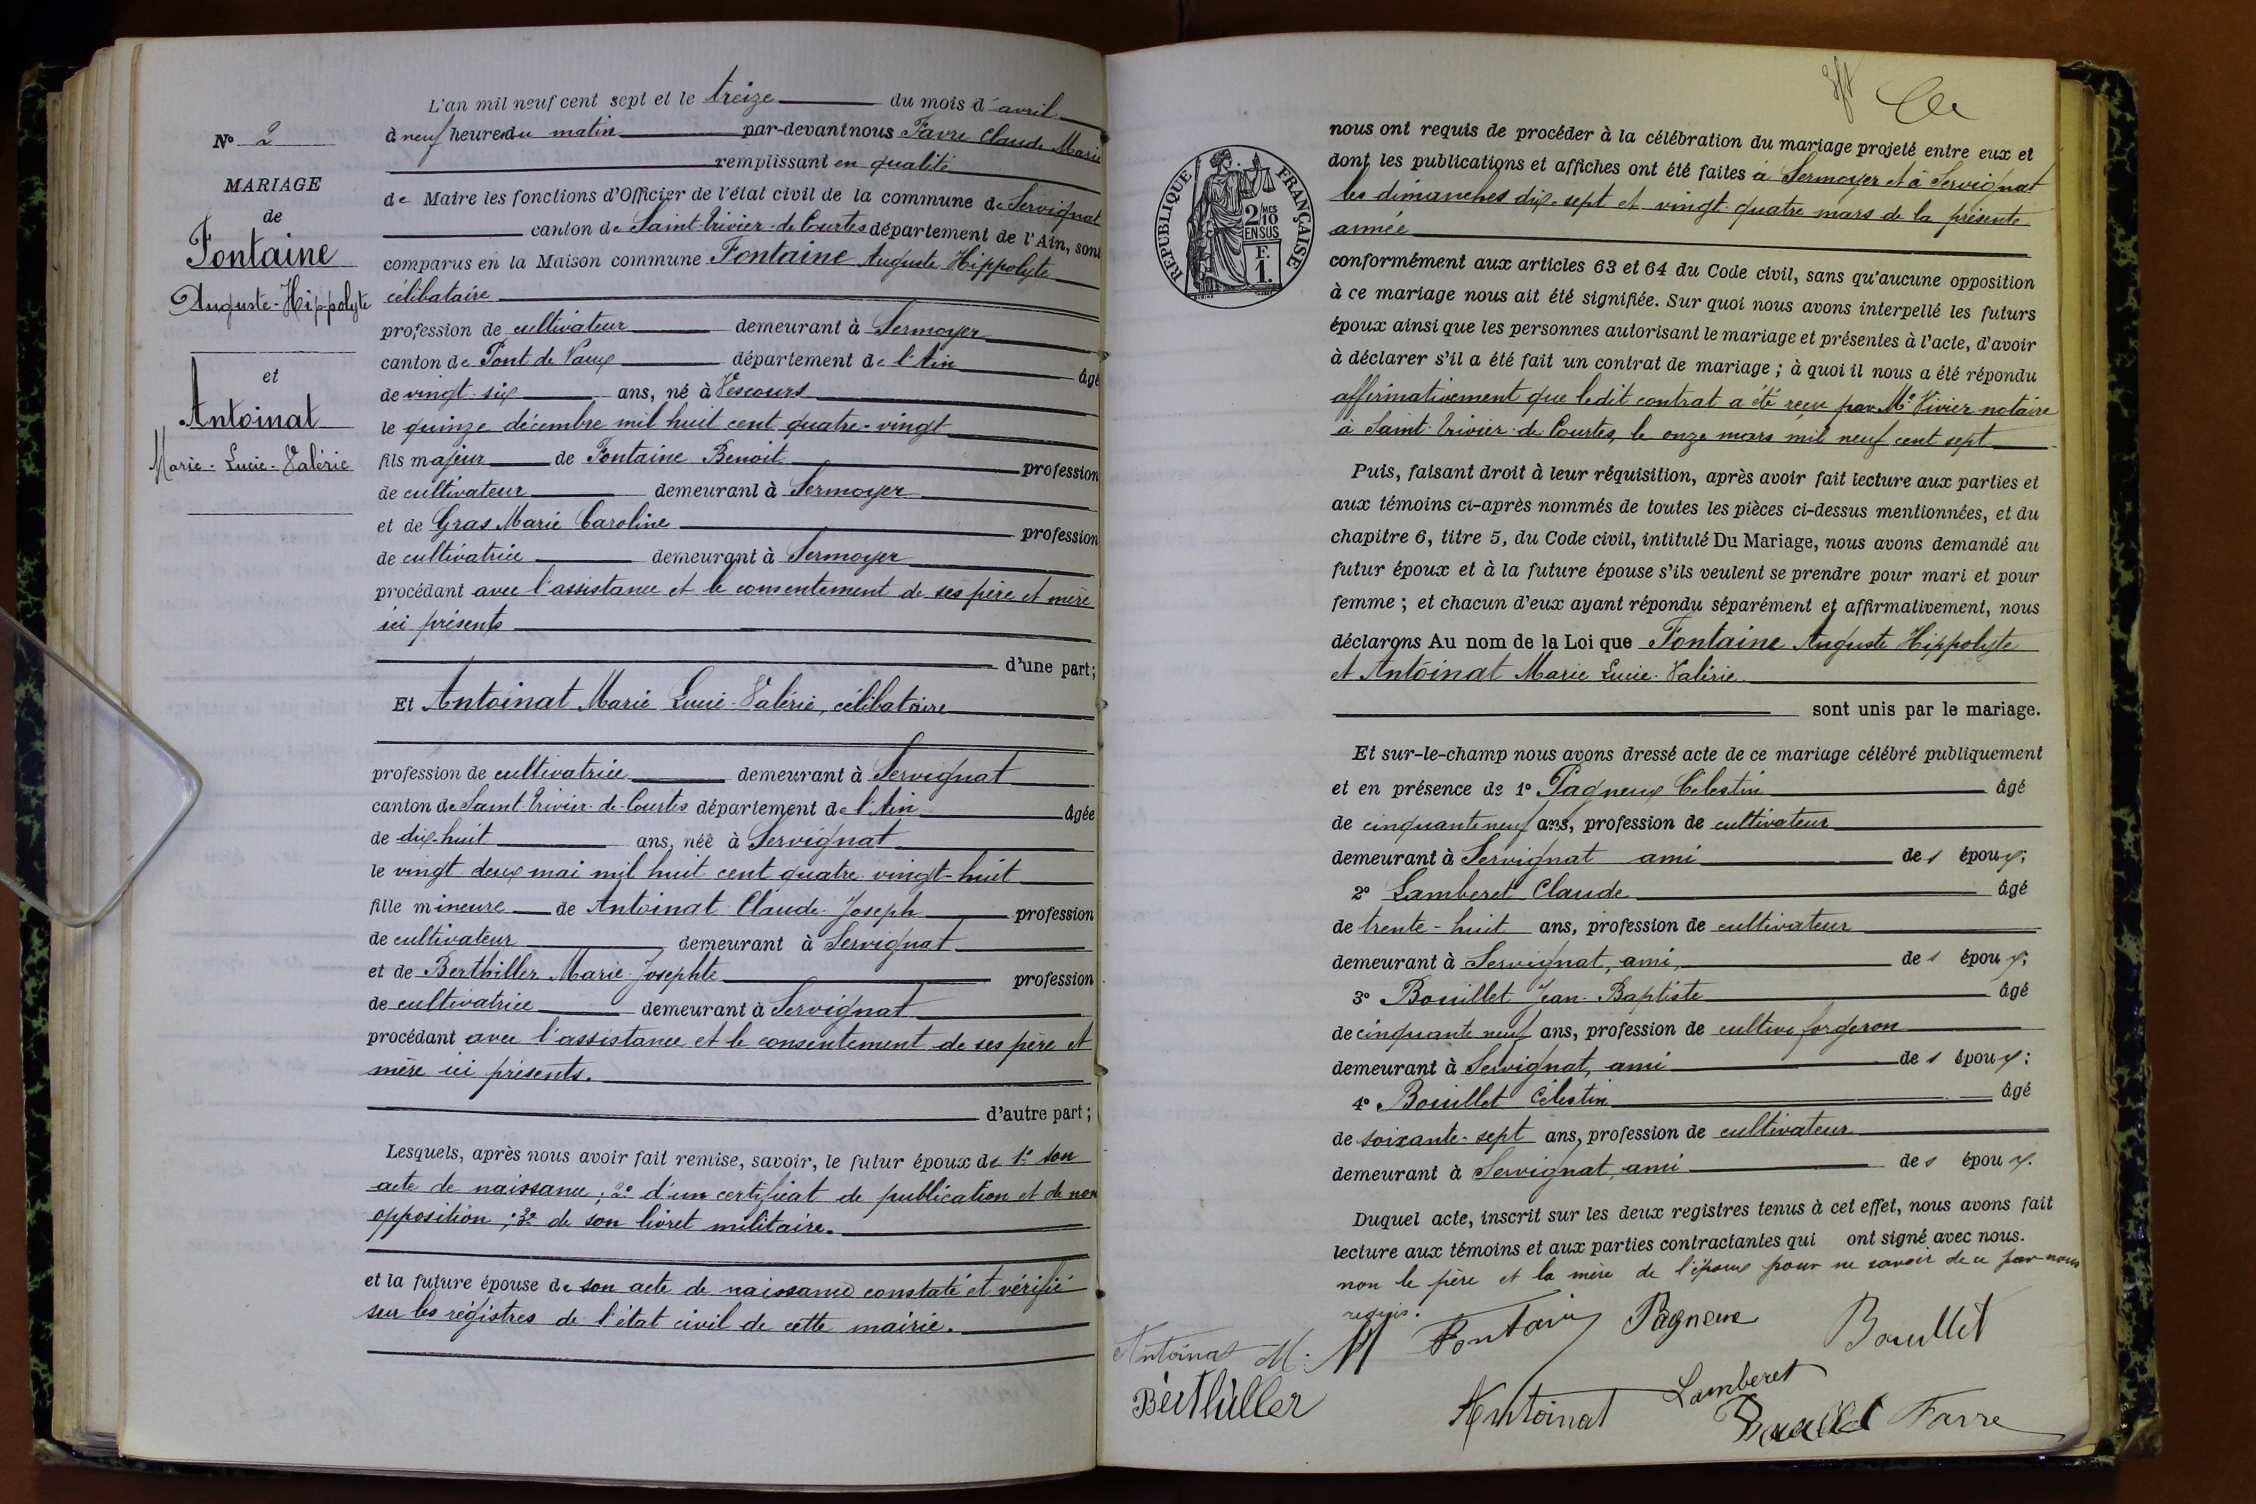 L'an mil neuf cent sept et le treize du mois d'avril
N° 2
à neuf heures du matin par-devant nous Favre Claude Marie
remplissant en qualité
MARIAGE
de Maire les fonctions d'Officier de l'état civil de la commune de Servignat
de
canton de Saint-Trivier-de-Courtes département de l'Ain, sont
Fontaine
comparus en la Maison commune Fontaine Auguste Hippolyte
Auguste-Hippolyte
célibataire
profession de cultivateur demeurant à Sermoyer
canton de Pont de Vaux département de l'Ain âgé
et
de vingt-six ans, né à Vescours
Antoinat
le quinze décembre mil huit cent quatre-vingt
Marie-Lucie-Valérie
fils majeur de Fontaine Benoit profession
de cultivateur demeurant à Sermoyer
et de Gras Marie Caroline profession
de cultivatrice demeurant à Sermoyer
procédant avec l'assistance et le consentement de ses père et mère
ici présents
d'une part;
Et Antoinat Marie Lucie-Valérie, célibataire
profession de cultivatrice demeurant à Servignat
canton de Saint-Trivier-de-Courtes département de l'Ain âgée
de dix-huit ans, née à Servignat
le vingt deux mai mil huit cent quatre-vingt-huit
fille mineure de Antoinat Claude-Joseph profession
de cultivateur demeurant à Servignat
et de Berthiller Marie-Josephte profession
de cultivatrice demeurant à Servignat
procédant avec l'assistance et le consentement de ses père et
mère ici présents.
d'autre part;
Lesquels, après nous avoir fait remise, savoir, le futur époux de 1° son
acte de naissance; 2° d'un certificat de publication et de non
opposition; 3° de son livret militaire.
et la future épouse de son acte de naissance constaté et vérifié
sur les régistres de l'état civil de cette mairie.
RÉPUBLIQUE FRANÇAISE
2/10 MES
EN SUS
F.
1.
nous ont requis de procéder à la célébration du mariage projeté entre eux et
dont les publications et affiches ont été faites à Sermoyer et à Servignat
les dimanches dix-sept et vingt-quatre mars de la présente
année
conformément aux articles 63 et 64 du Code civil, sans qu'aucune opposition
à ce mariage nous ait été signifiée. Sur quoi nous avons interpellé les futurs
époux ainsi que les personnes autorisant le mariage et présentes à l'acte, d'avoir
à déclarer s'il a été fait un contrat de mariage; à quoi il nous a été répondu
affirmativement que ledit contrat a été reçu par Me Vivier notaire
à Saint-Trivier-de-Courtes, le onze mars mil neuf cent sept
Puis, faisant droit à leur réquisition, après avoir fait lecture aux parties et
aux témoins ci-après nommés de toutes les pièces ci-dessus mentionnées, et du
chapitre 6, titre 5, du Code civil, intitulé Du Mariage, nous avons demandé au
futur époux et à la future épouse s'ils veulent se prendre pour mari et pour
femme; et chacun d'eux ayant répondu séparément et affirmativement, nous
déclarons Au nom de la Loi que Fontaine Auguste Hippolyte
et Antoinat Marie Lucie-Valérie
sont unis par le mariage.
Et sur-le-champ nous avons dressé acte de ce mariage célébré publiquement
et en présence de 1° Pagneux Célestin âgé
de cinquante neuf ans, profession de cultivateur
demeurant à Servignat ami des époux;
2° Lamberet Claude âgé
de trente-huit ans, profession de cultivateur
demeurant à Servignat, ami, des époux;
3° Bouillet Jean-Baptiste âgé
de cinquante neuf ans, profession de cultive forgeron
demeurant à Servignat, ami des époux;
4° Bouillet Célestin âgé
de soixante-sept ans, profession de cultivateur
demeurant à Servignat, ami des époux.
Duquel acte, inscrit sur les deux registres tenus à cet effet, nous avons fait
lecture aux témoins et aux parties contractantes qui ont signé avec nous.
non le père et la mère de l'époux pour ne savoir de ce par nous
requis.
Antoinat M. Fontaine Pagneux Bouillet
Berthiller Antoinat Lamberet
Bouillet Favre